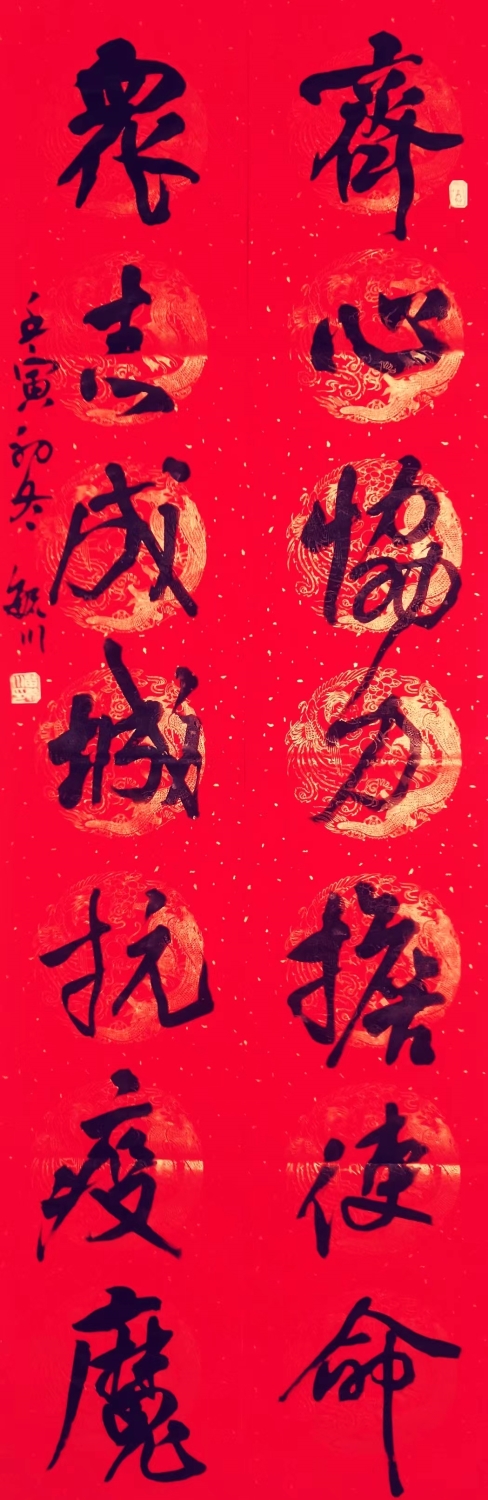 齊心協力擔使命
衆志成城抗疫魔
壬寅初冬 川